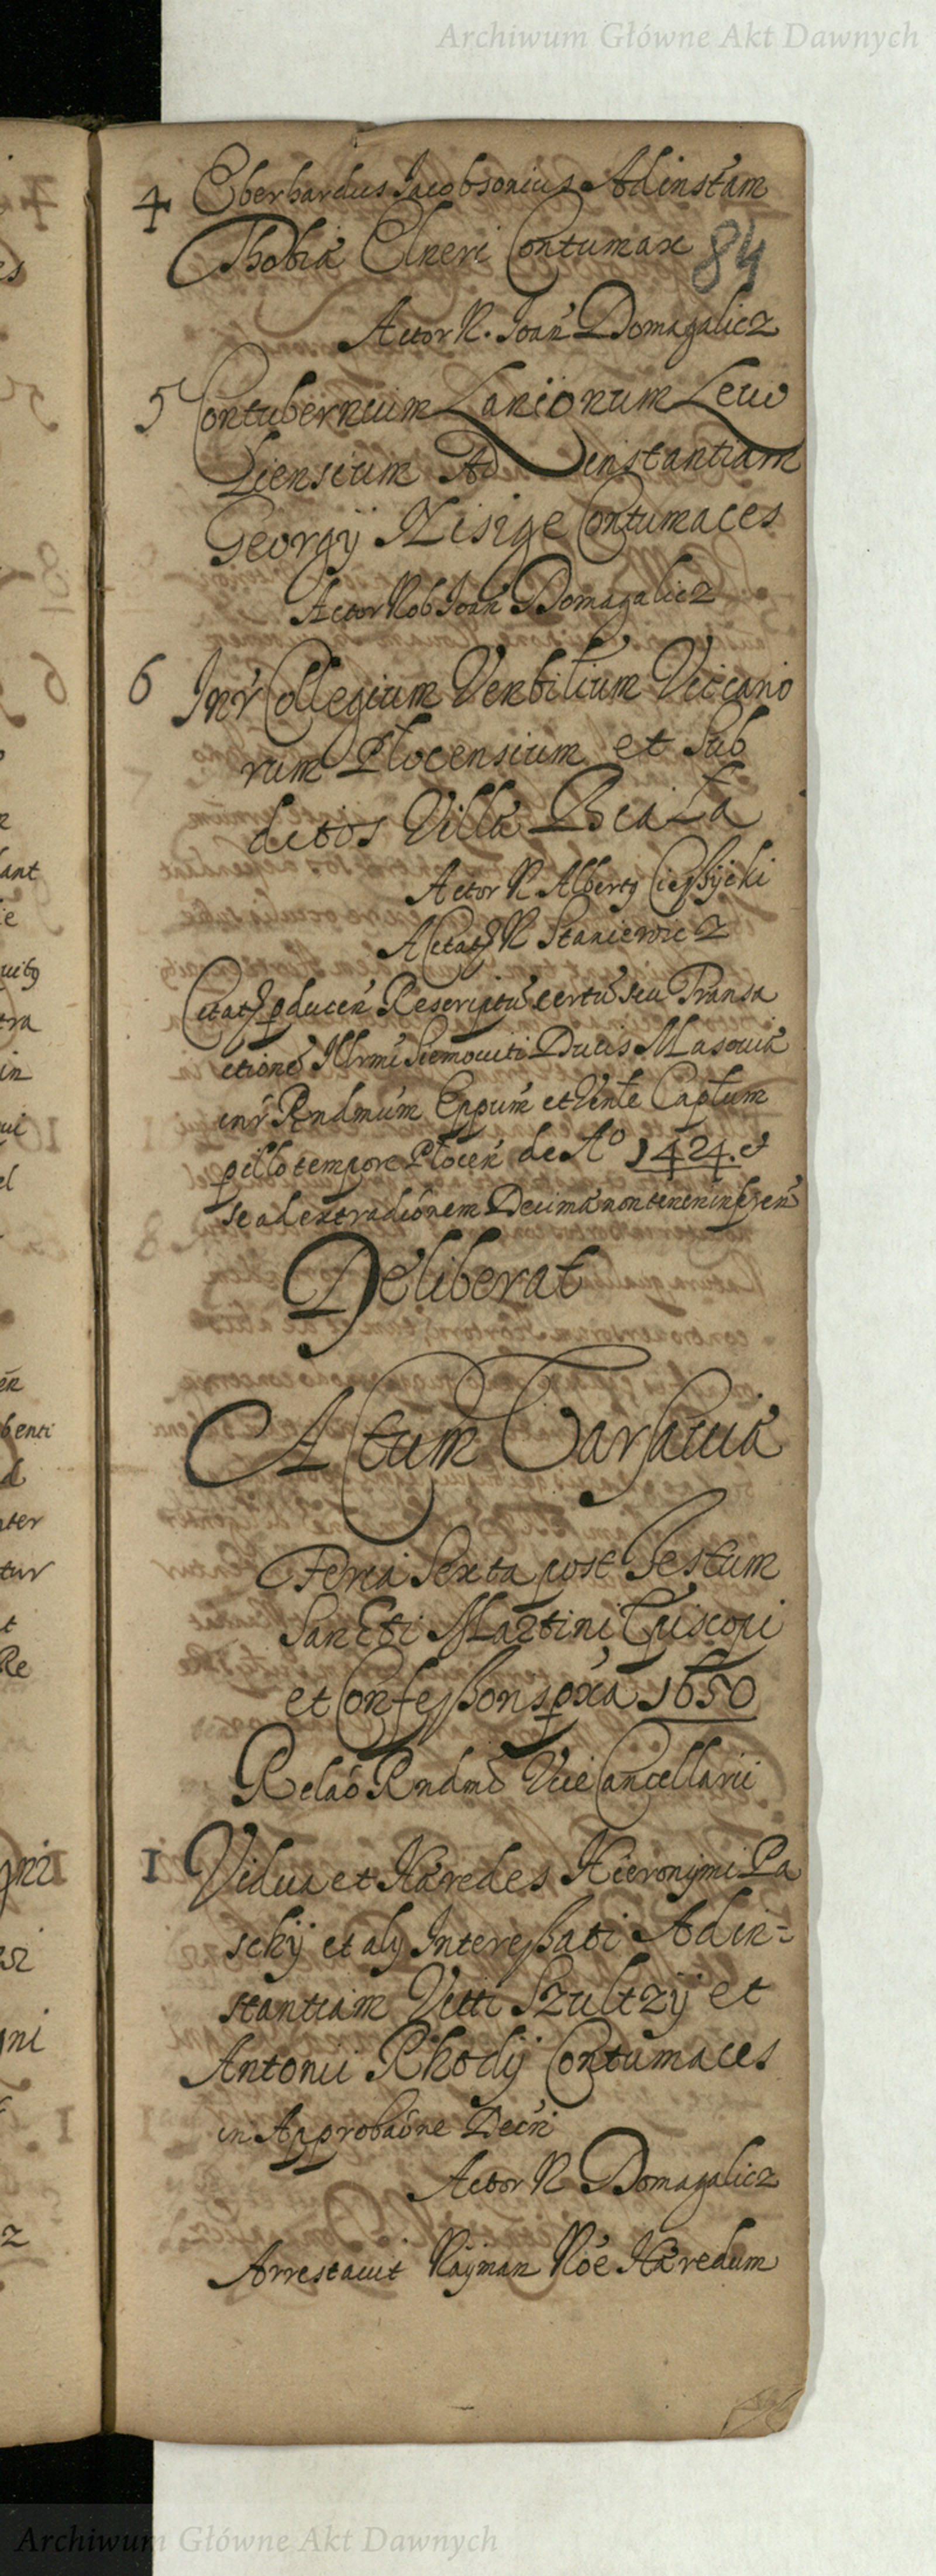 Archiwum Główne Akt Dawnych
4 Eberhardus Jacobsonius Ad instam
Thobiæ Elneri Contumax
84
Actor N. Joan Domagalicz
5 Contubernium Lanionum Leuo
Liensium Ad instantiam
Georgÿ Contumaces
Actor Nob Joan Domagalicz
6 Inr Collegium Venbilium Vicario
rum Plocensium et Sub
ditos Villæ Biała
Actor N Albertg
A Citatg N Staniewicz
Citatg pducen Rescriptu certu seu Transa
ctione Illrmi Siemouiti Ducis Masouiæ
inr Rndmum Eppum et Vente Captum
p illo tempore Plocen de Aº 1424. et
se ad extradionem Decimæ non teneri
Deliberat
Actum Varsauiæ
Feria Sexta post Festum
Sancti Martini Episcopi
et Confessoris pxa 1650
Relaõ Rndmi Vice Cancellarii
1 Vidua et Hæredes Hieronymi Pa
schÿ et alÿ Interessati Ad in=
stantiam Viti Szultzÿ et
Antonii Rhodÿ Contumaces
in Approbaõne Decri
Actor N Domagalicz
Arrestauit Rayman Nõe Hæredum
Archiwum Główne Akt Dawnych